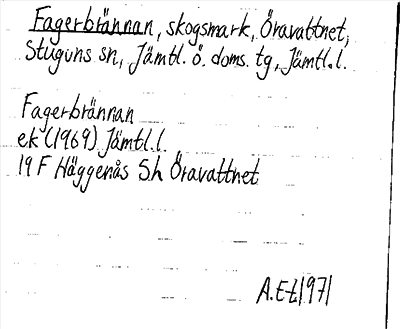 Fagerbrännan, skogsmark, Öravattnet,
Stuguns sn, Jämtl. ö. doms. tg, Jämtl. l.
Fagerbrännan
ek (1969) Jämtl. l.
19 F Häggenås 5h Öravattnet
A.Et 1971